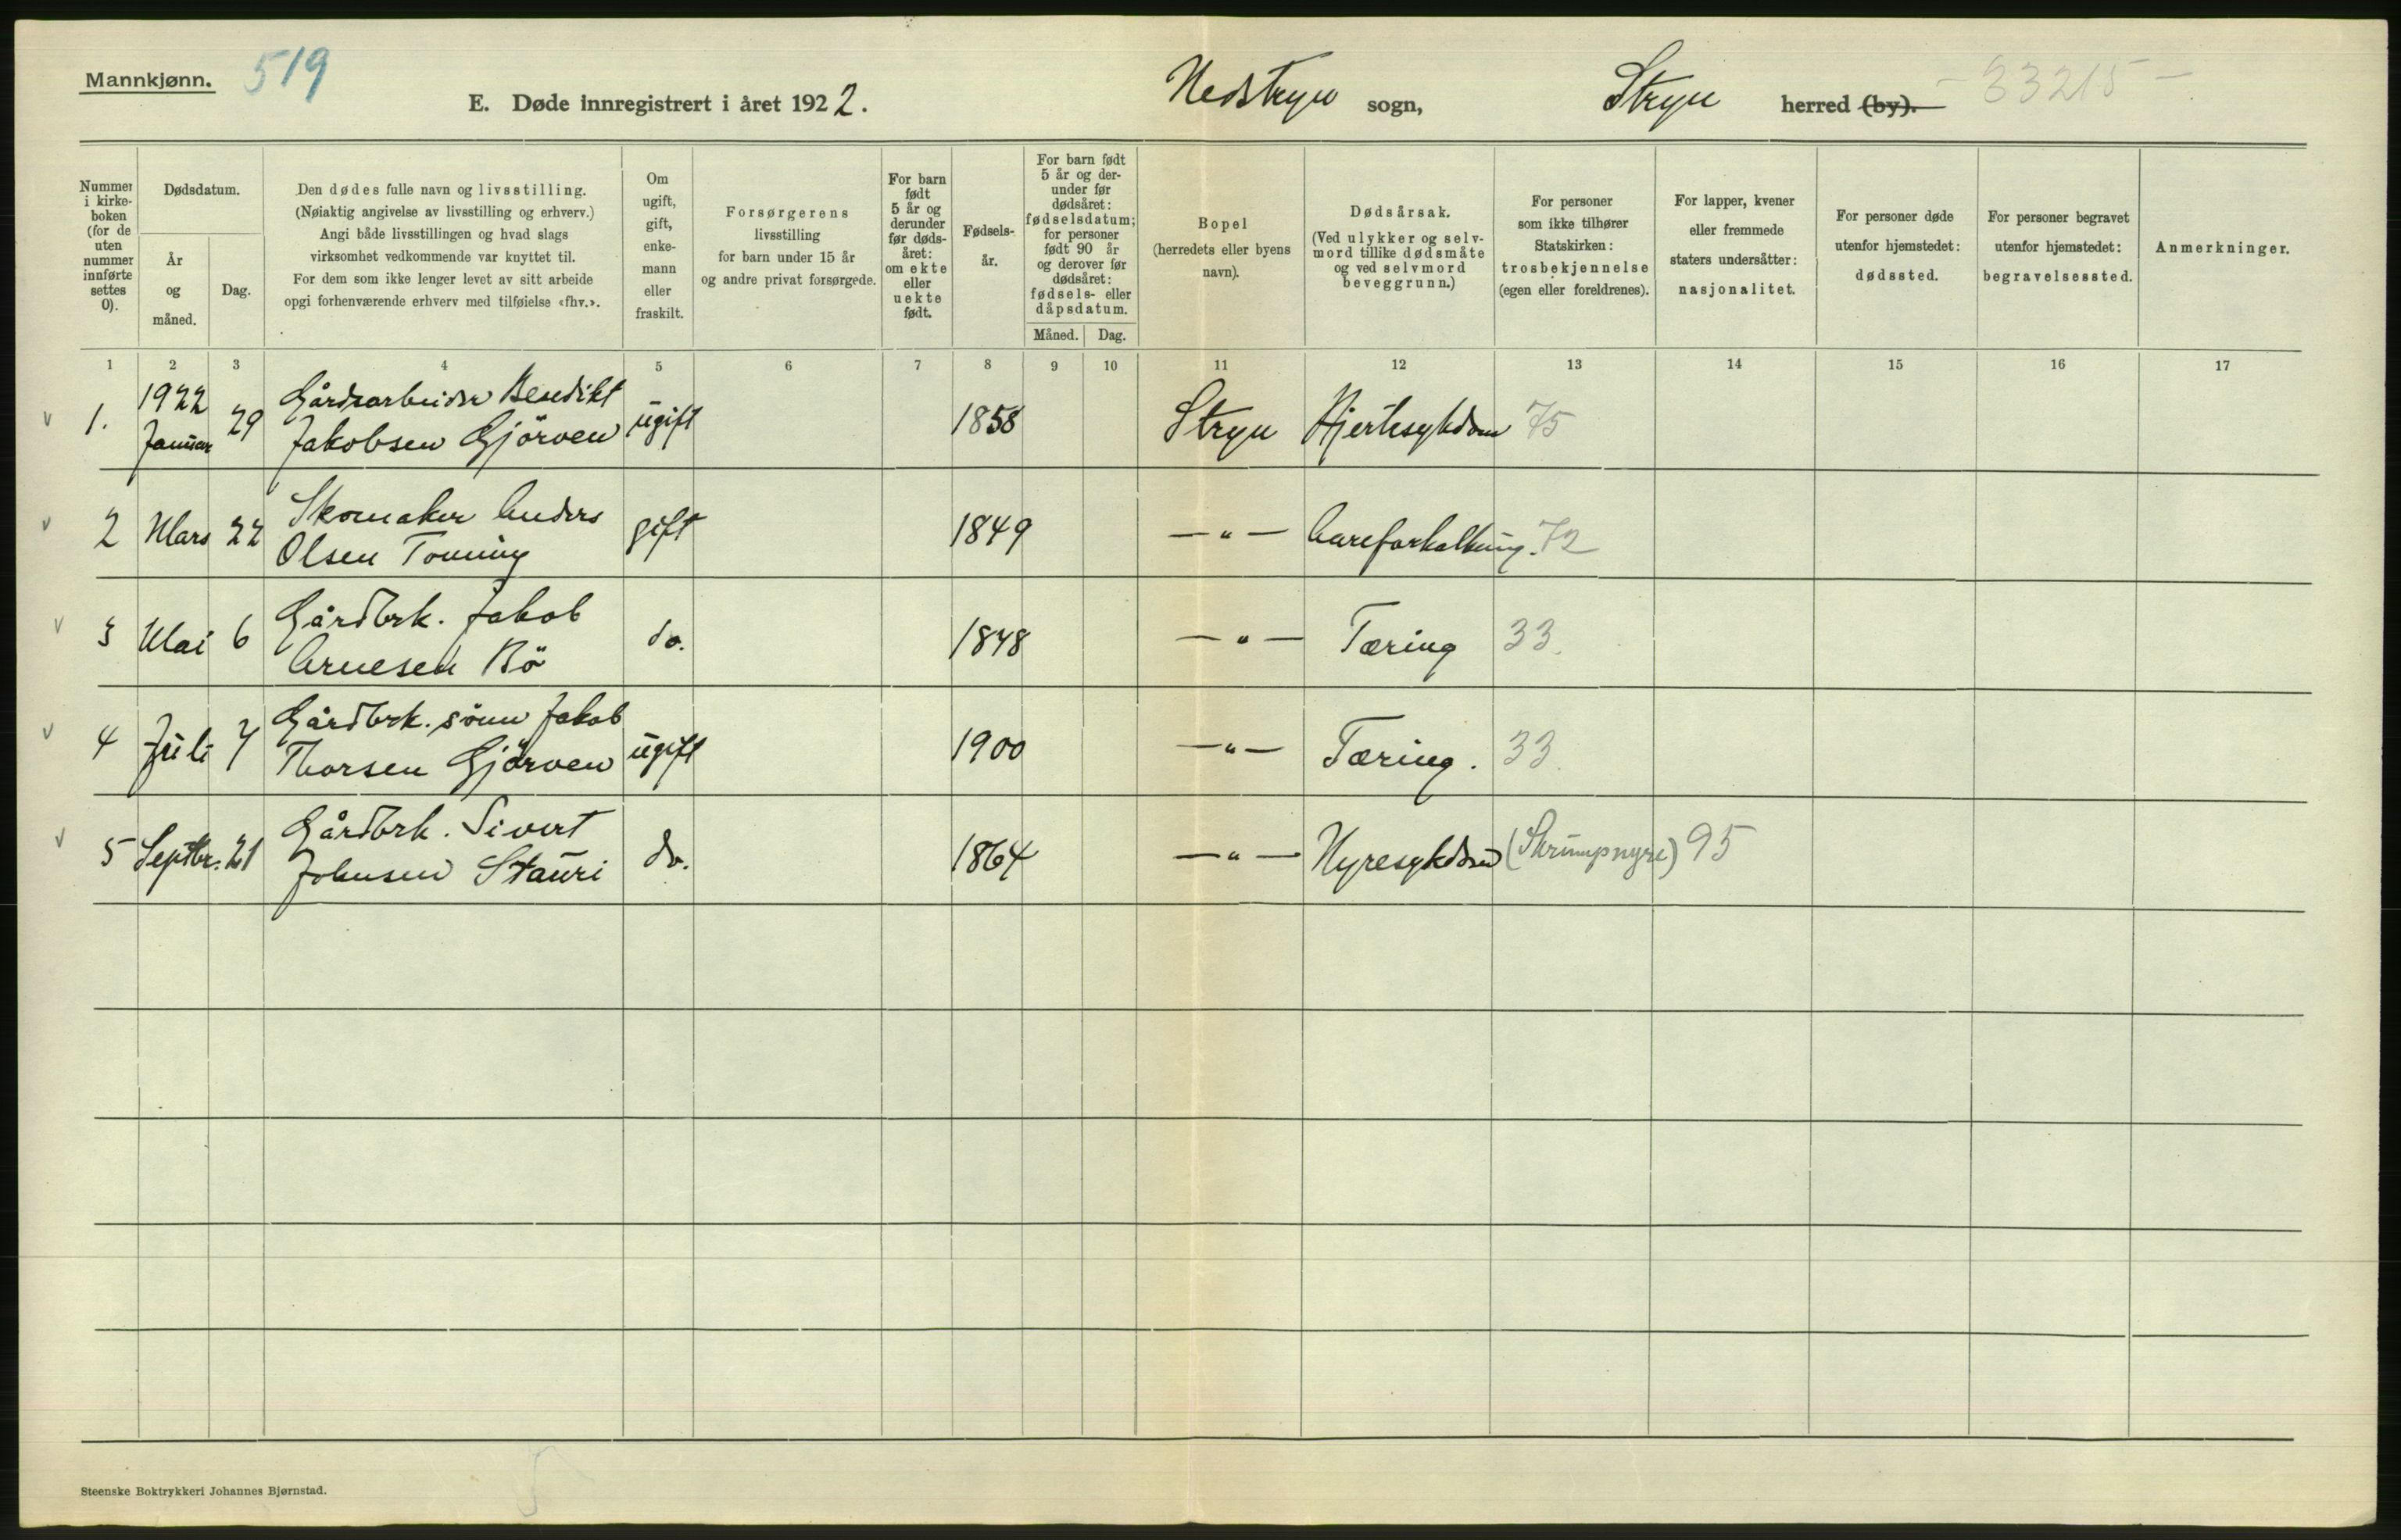 Mannkjønn. 519
E. Døde innregistrert i året 1922. Nedstryn sogn, Stryn herred (by). - 33215 -
Nummer i kirke- boken (for de uten nummer innførte settes 0).
Dødsdatum.
År og måned.
Dag.
Den dødes fulle navn og livsstilling.
(Nøiaktig angivelse av livsstilling og erhverv.)
Angi både livsstillingen og hvad slags
virksomhet vedkommende var knyttet til.
For dem som ikke lenger levet av sitt arbeide
opgi forhenværende erhverv med tilføielse «fhv.».
Om ugift, gift, enke- mann eller fraskilt.
Forsørgerens
livsstilling
for barn under 15 år
og andre privat forsørgede.
For barn født 5 år og derunder før døds- året: om ekte eller uekte født.
Fødsels- år.
For barn født 5 år og der- under før dødsåret: fødselsdatum; for personer født 90 år og derover før dødsåret: fødsels- eller dåpsdatum.
Måned. Dag.
Bopel
(herredets eller byens
navn).
Dødsårsak.
(Ved ulykker og selv-
mord tillike dødsmåte
og ved selvmord
beveggrunn.)
For personer
som ikke tilhører
Statskirken:
trosbekjennelse
(egen eller foreldrenes).
For lapper, kvener
eller fremmede
staters undersåtter:
nasjonalitet.
For personer døde
utenfor hjemstedet:
dødssted.
For personer begravet
utenfor hjemstedet:
begravelsessted.
Anmerkninger.
1 2 3 4 5 6 7 8 9 10 11 12 13 14 15 16 17
v 1. 1922 Januar 29 Gårdsarbeider Benedikt Jakobsen Gjörven ugift 1858 Stryn Hjertesykdom 75
v 2 Mars 22 Skomaker Anders Olsen Tonning gift 1849 — " — Aareforkalkning. 72
v 3 Mai 6 Gårdbrk. Jakob Arnesen Bö do. 1848 — " — Tæring 33.
v 4 Juli 7 Gårdbrk. sönn Jakob Thorsen Gjörven ugift 1900 — " — Tæring. 33.
v 5 Septbr. 21 Gårdbrk. Sivert Johnsen Stauri do. 1864 — " — Nyresykdom (Skrumpnyre) 95
5
Steenske Boktrykkeri Johannes Bjørnstad.